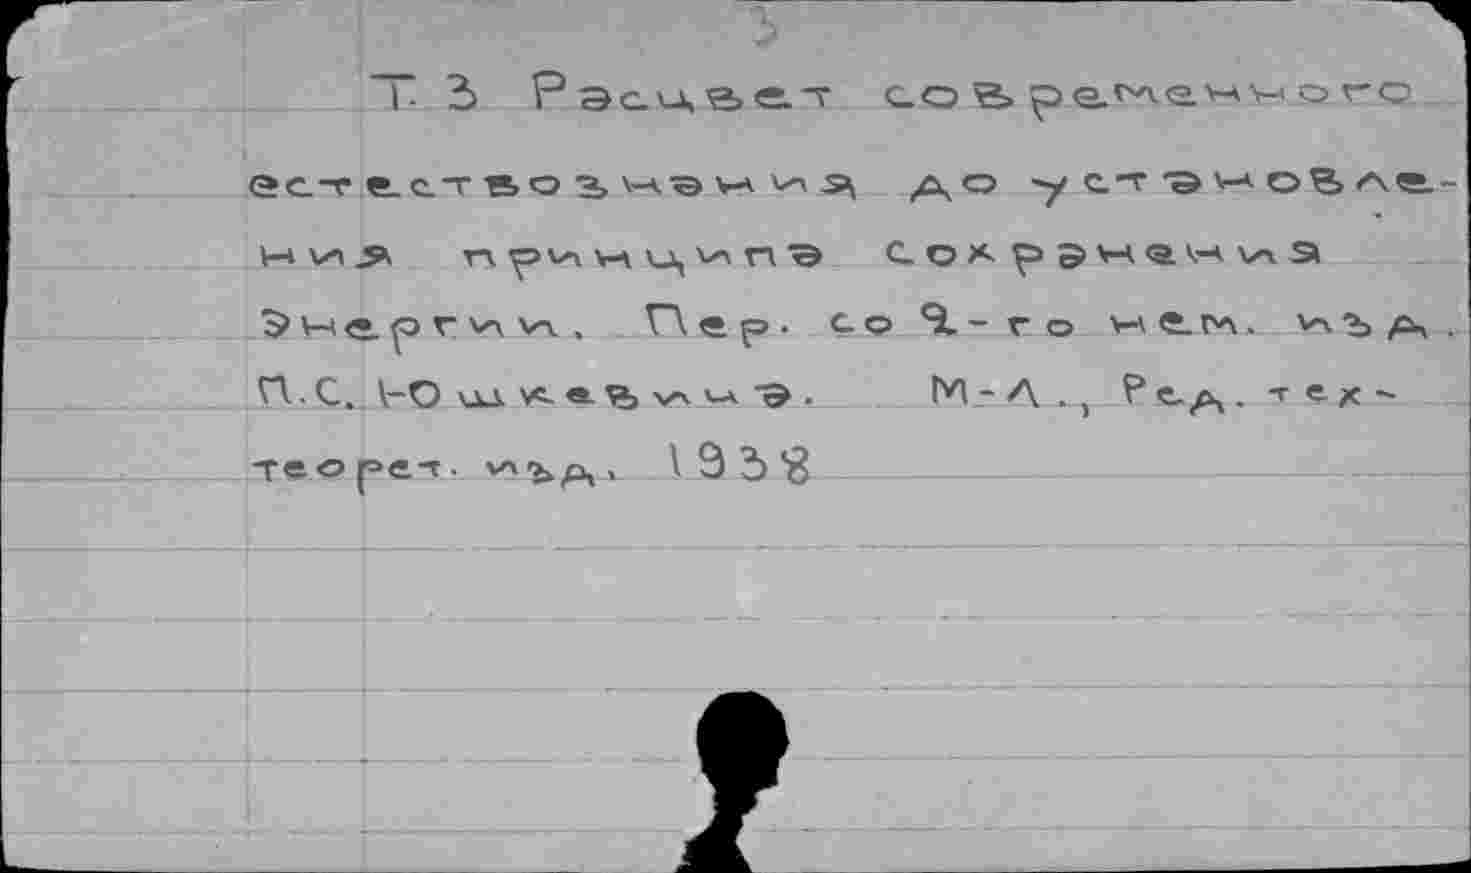 Т. 3 Расцвет современного
естествознания до установле-
ния принципа сохранения
энергии. Пер. со 2-го нем. изд.
П.С. Юшкевича. М-Л., Ред. тех-
теорет. изд., 1938